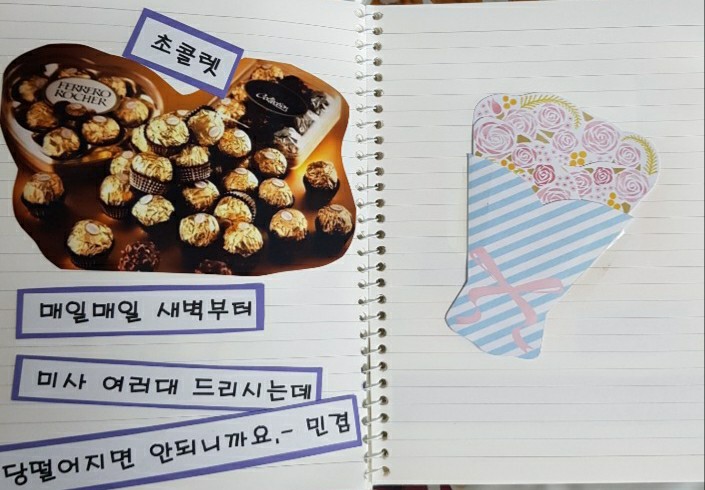 초콜렛
FERRERO
ROCHER
매일매일 새벽부터
미사 여러대 드리시는데
당떨어지면 안되니까요.- 민겸